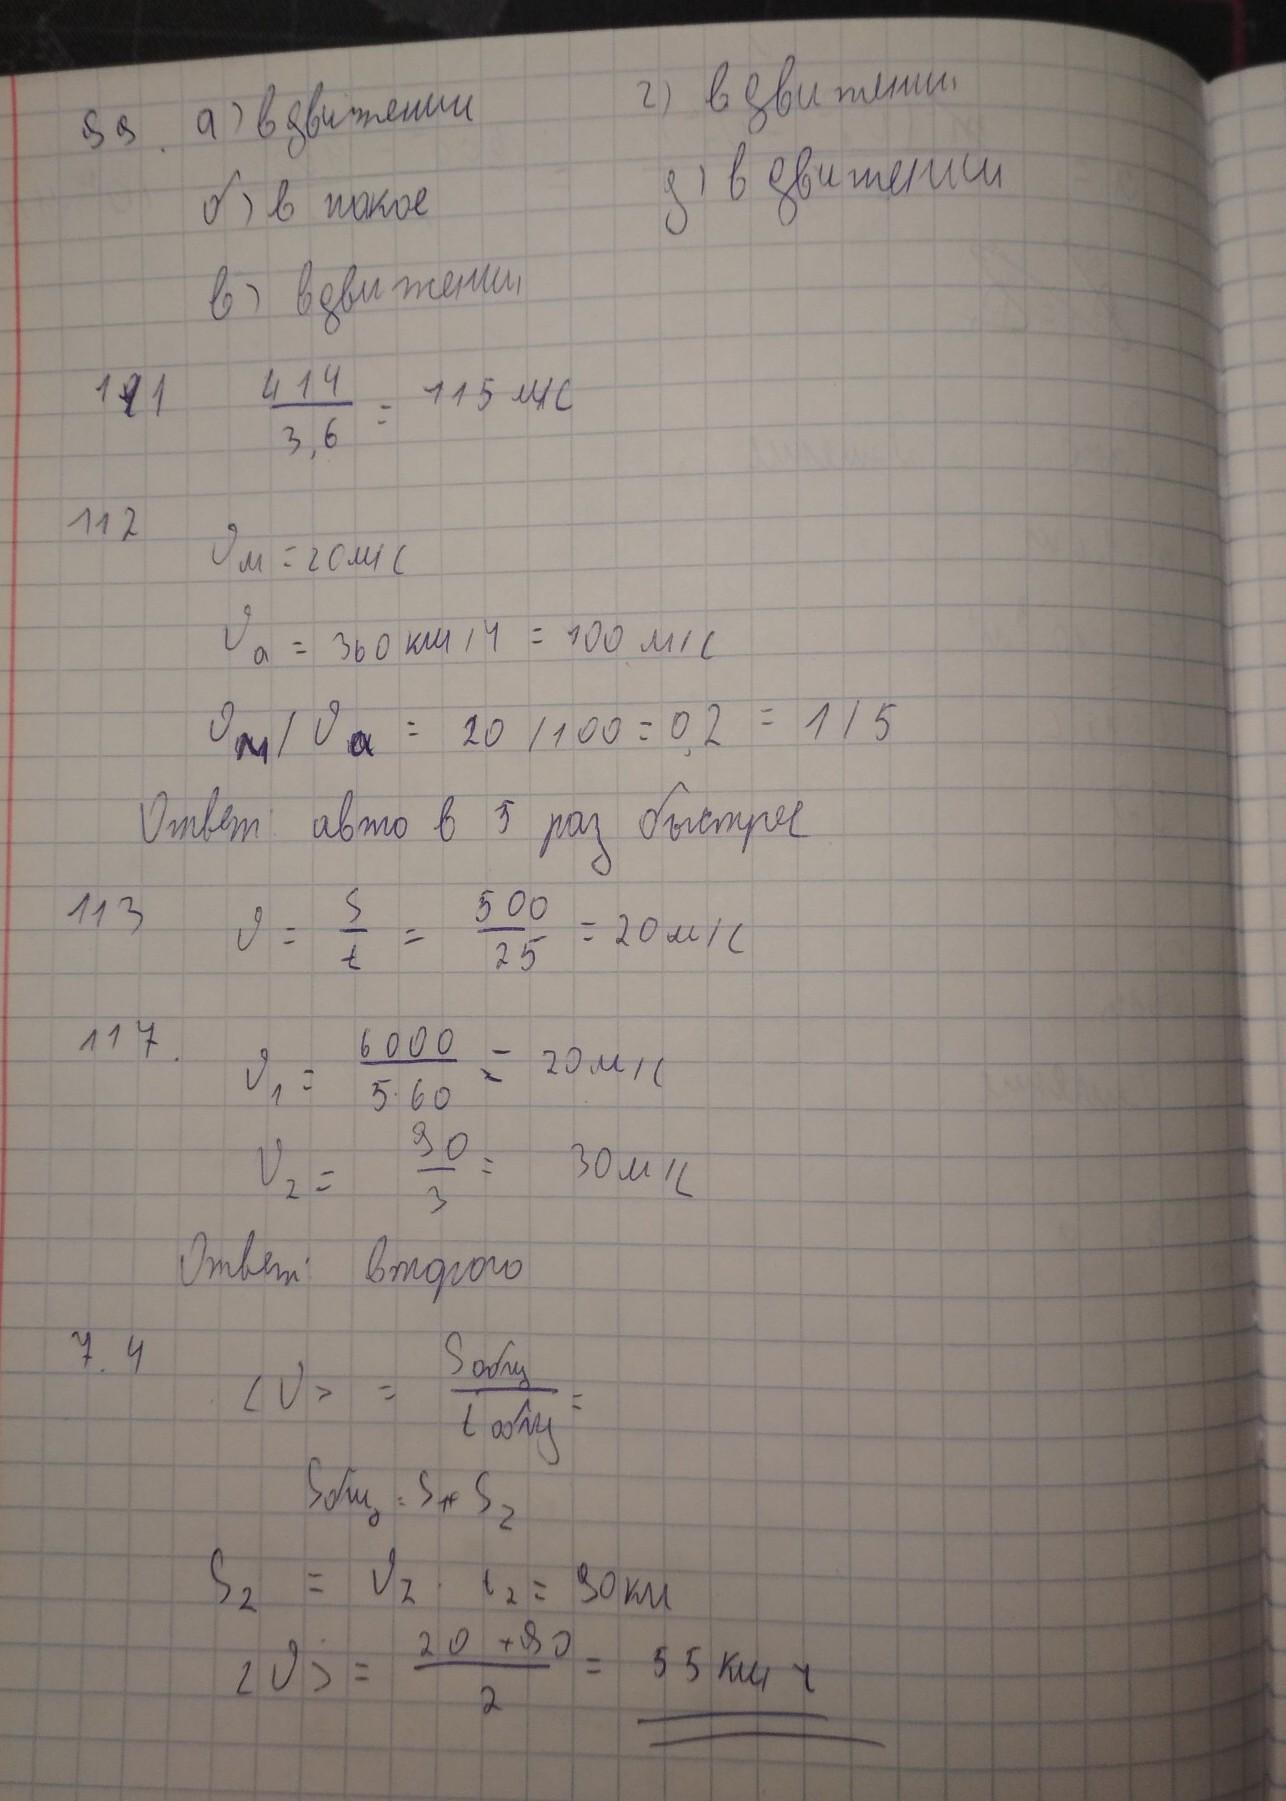 99. а) в движении
б) в покое
в) в движении
г) в движении
д) в движении
111 414/3,6 = 115 м/с
112 υм = 20 м/с
υа = 360 км/ч = 100 м/с
υм / υа = 20 / 100 = 0,2 = 1/5
Ответ: авто в 5 раз быстрее
113 υ = S/t = 500/25 = 20 м/с
117. υ1 = 6000/5·60 = 20 м/с
υ2 = 90/3 = 30 м/с
Ответ: второго
7.4 <υ> = Sобщ/tобщ =
Sобщ = S1+ S2
S2 = υ2 · t2 = 90 км
<υ> = 20+90/2 = 55 км ч